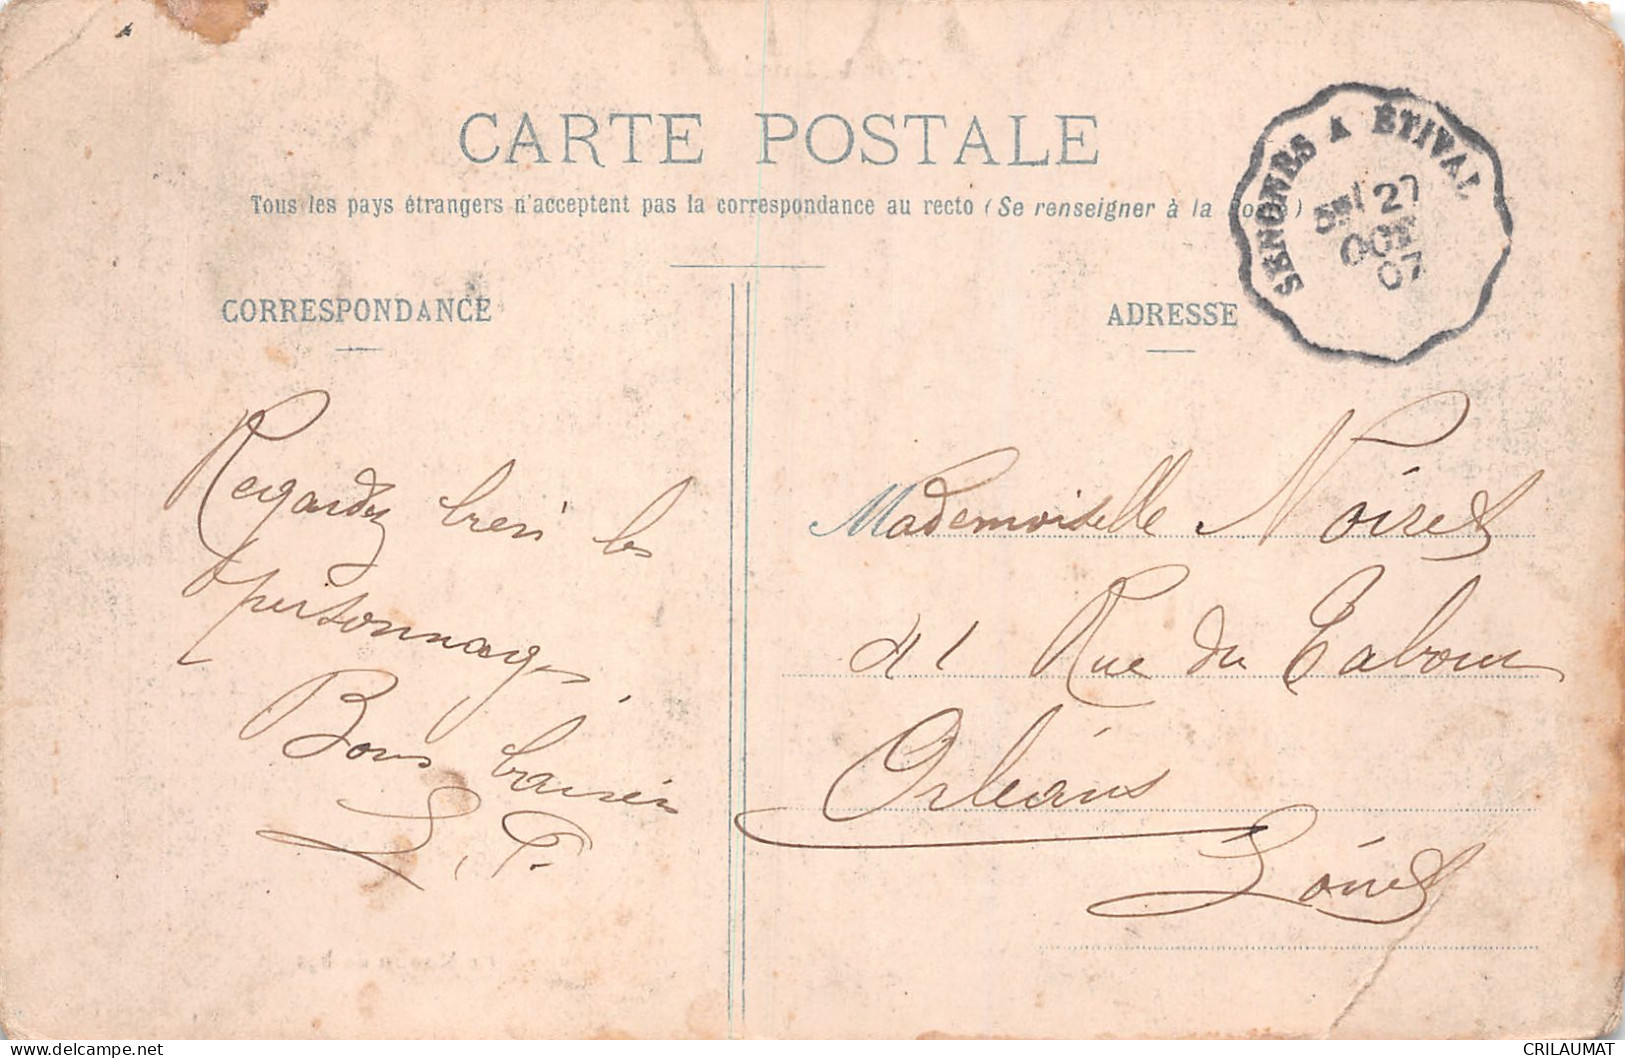 CARTE POSTALE
Tous les pays étrangers n'acceptent pas la correspondance au recto (Se renseigner à la Poste)
SENONES A ÉTIVAL
27
OCT
07
CORRESPONDANCE
ADRESSE
Regardez bien les
personnages,
Bons baisers
L. T.
Mademoiselle Noiret
41 Rue du Tabour
Orléans
Loiret
CRILAUMAT